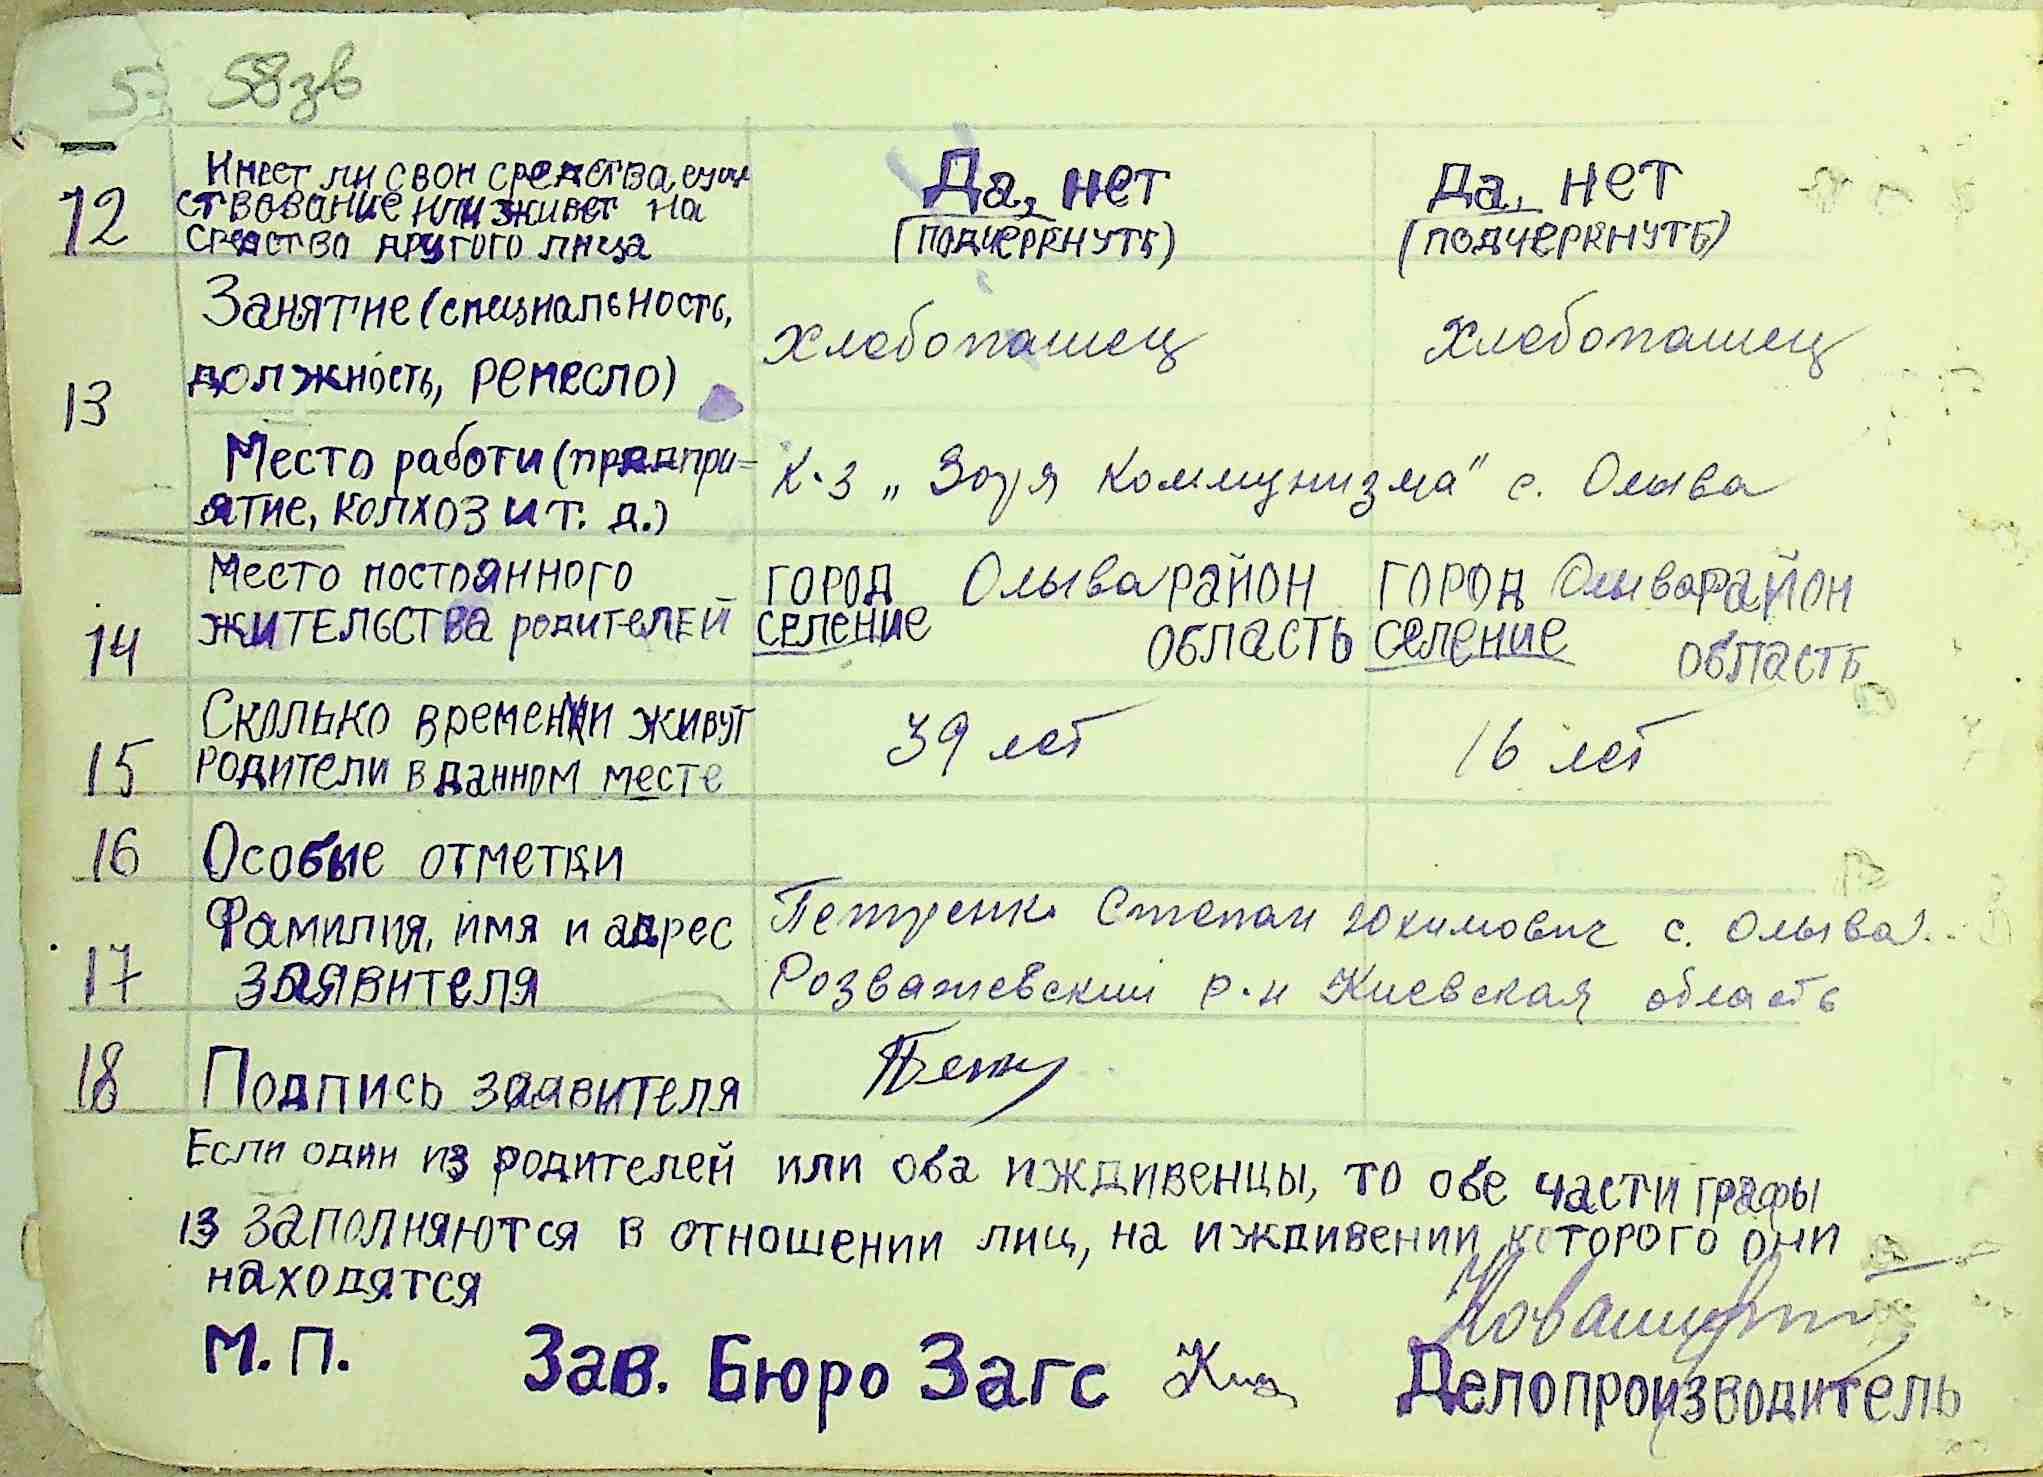 58зв
12 Имеет ли свои средства, суще
ствование или живет на
средства другого лица
Да, нет
(подчеркнуть)
Да, нет
(подчеркнуть)
13 Занятие (специальность,
должность, ремесло)
Хлебопашец
Хлебопашец
Место работи (предпри=
ятие, колхоз и т. д.)
К-з „Зоря Коммунизма" с. Олыва
14 Место постоянного
жительства родителей
город Олыва район
селение область
город Олыва район
селение область
15 Сколько времени живут
родители в данном месте
39 лет
16 лет
16 Особые отметки
17 Фамилия, имя и адрес
заявителя
Петренко Степан Юхимович с. Олыва
Розважевский р-н Киевская область
18 Подпись заявителя
Если один из родителей или оба иждивенцы, то обе части графы
13 заполняются в отношении лиц, на иждивении которого они
находятся
М.П. Зав. Бюро Загс Делопроизводитель